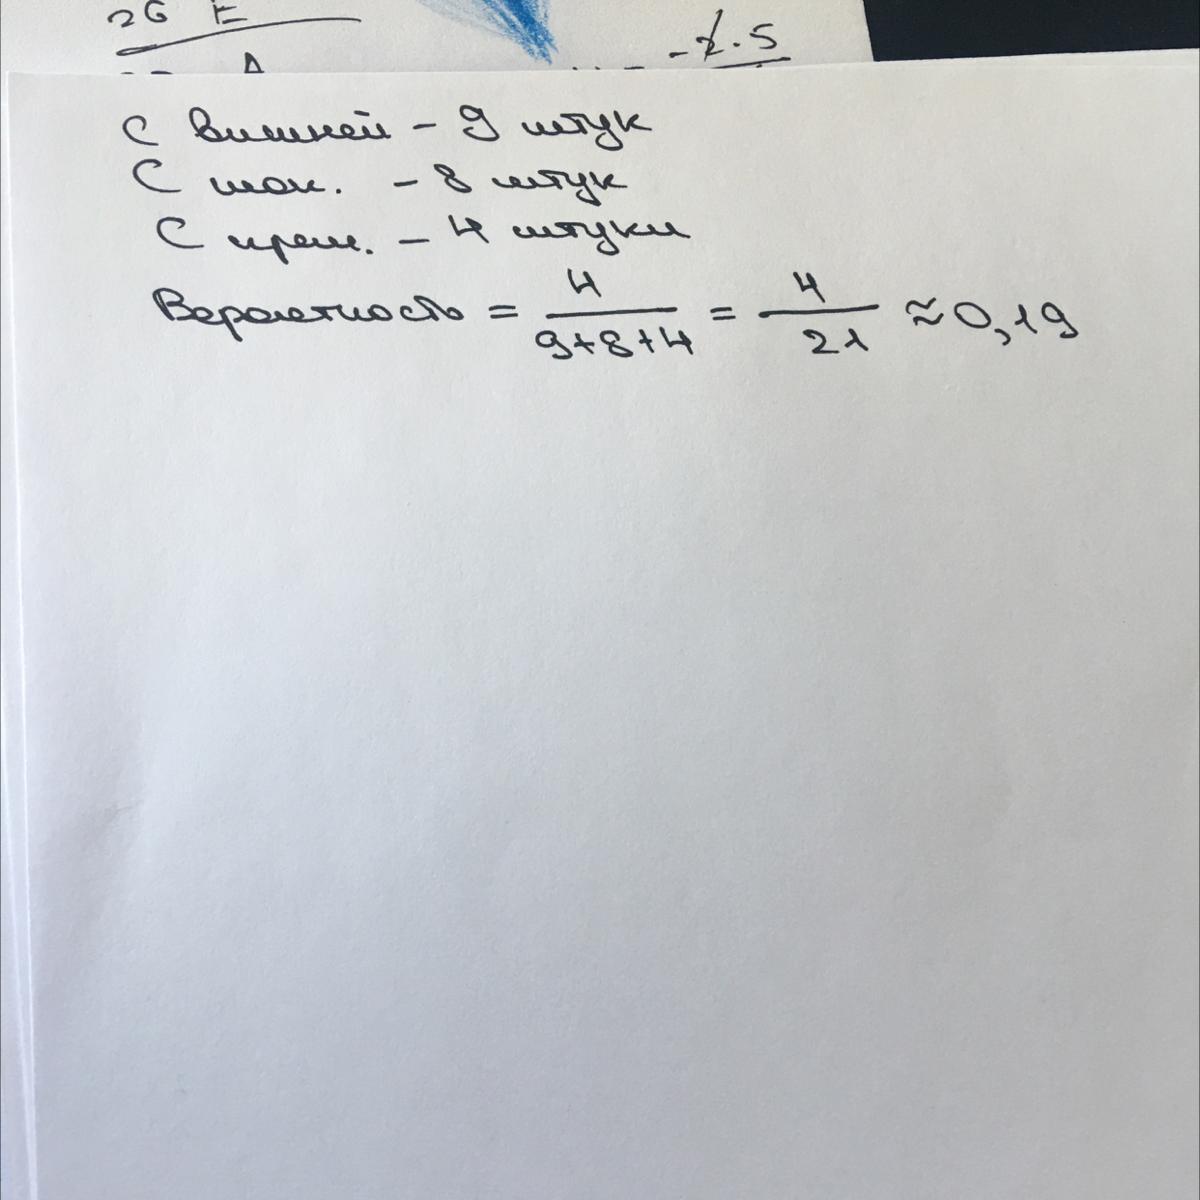 26 E
A
-2.5
С вишней - 9 штук
С шок. - 8 штук
С крем. - 4 штуки
Вероятность = 4/(9+8+4) = 4/21 ≈ 0,19